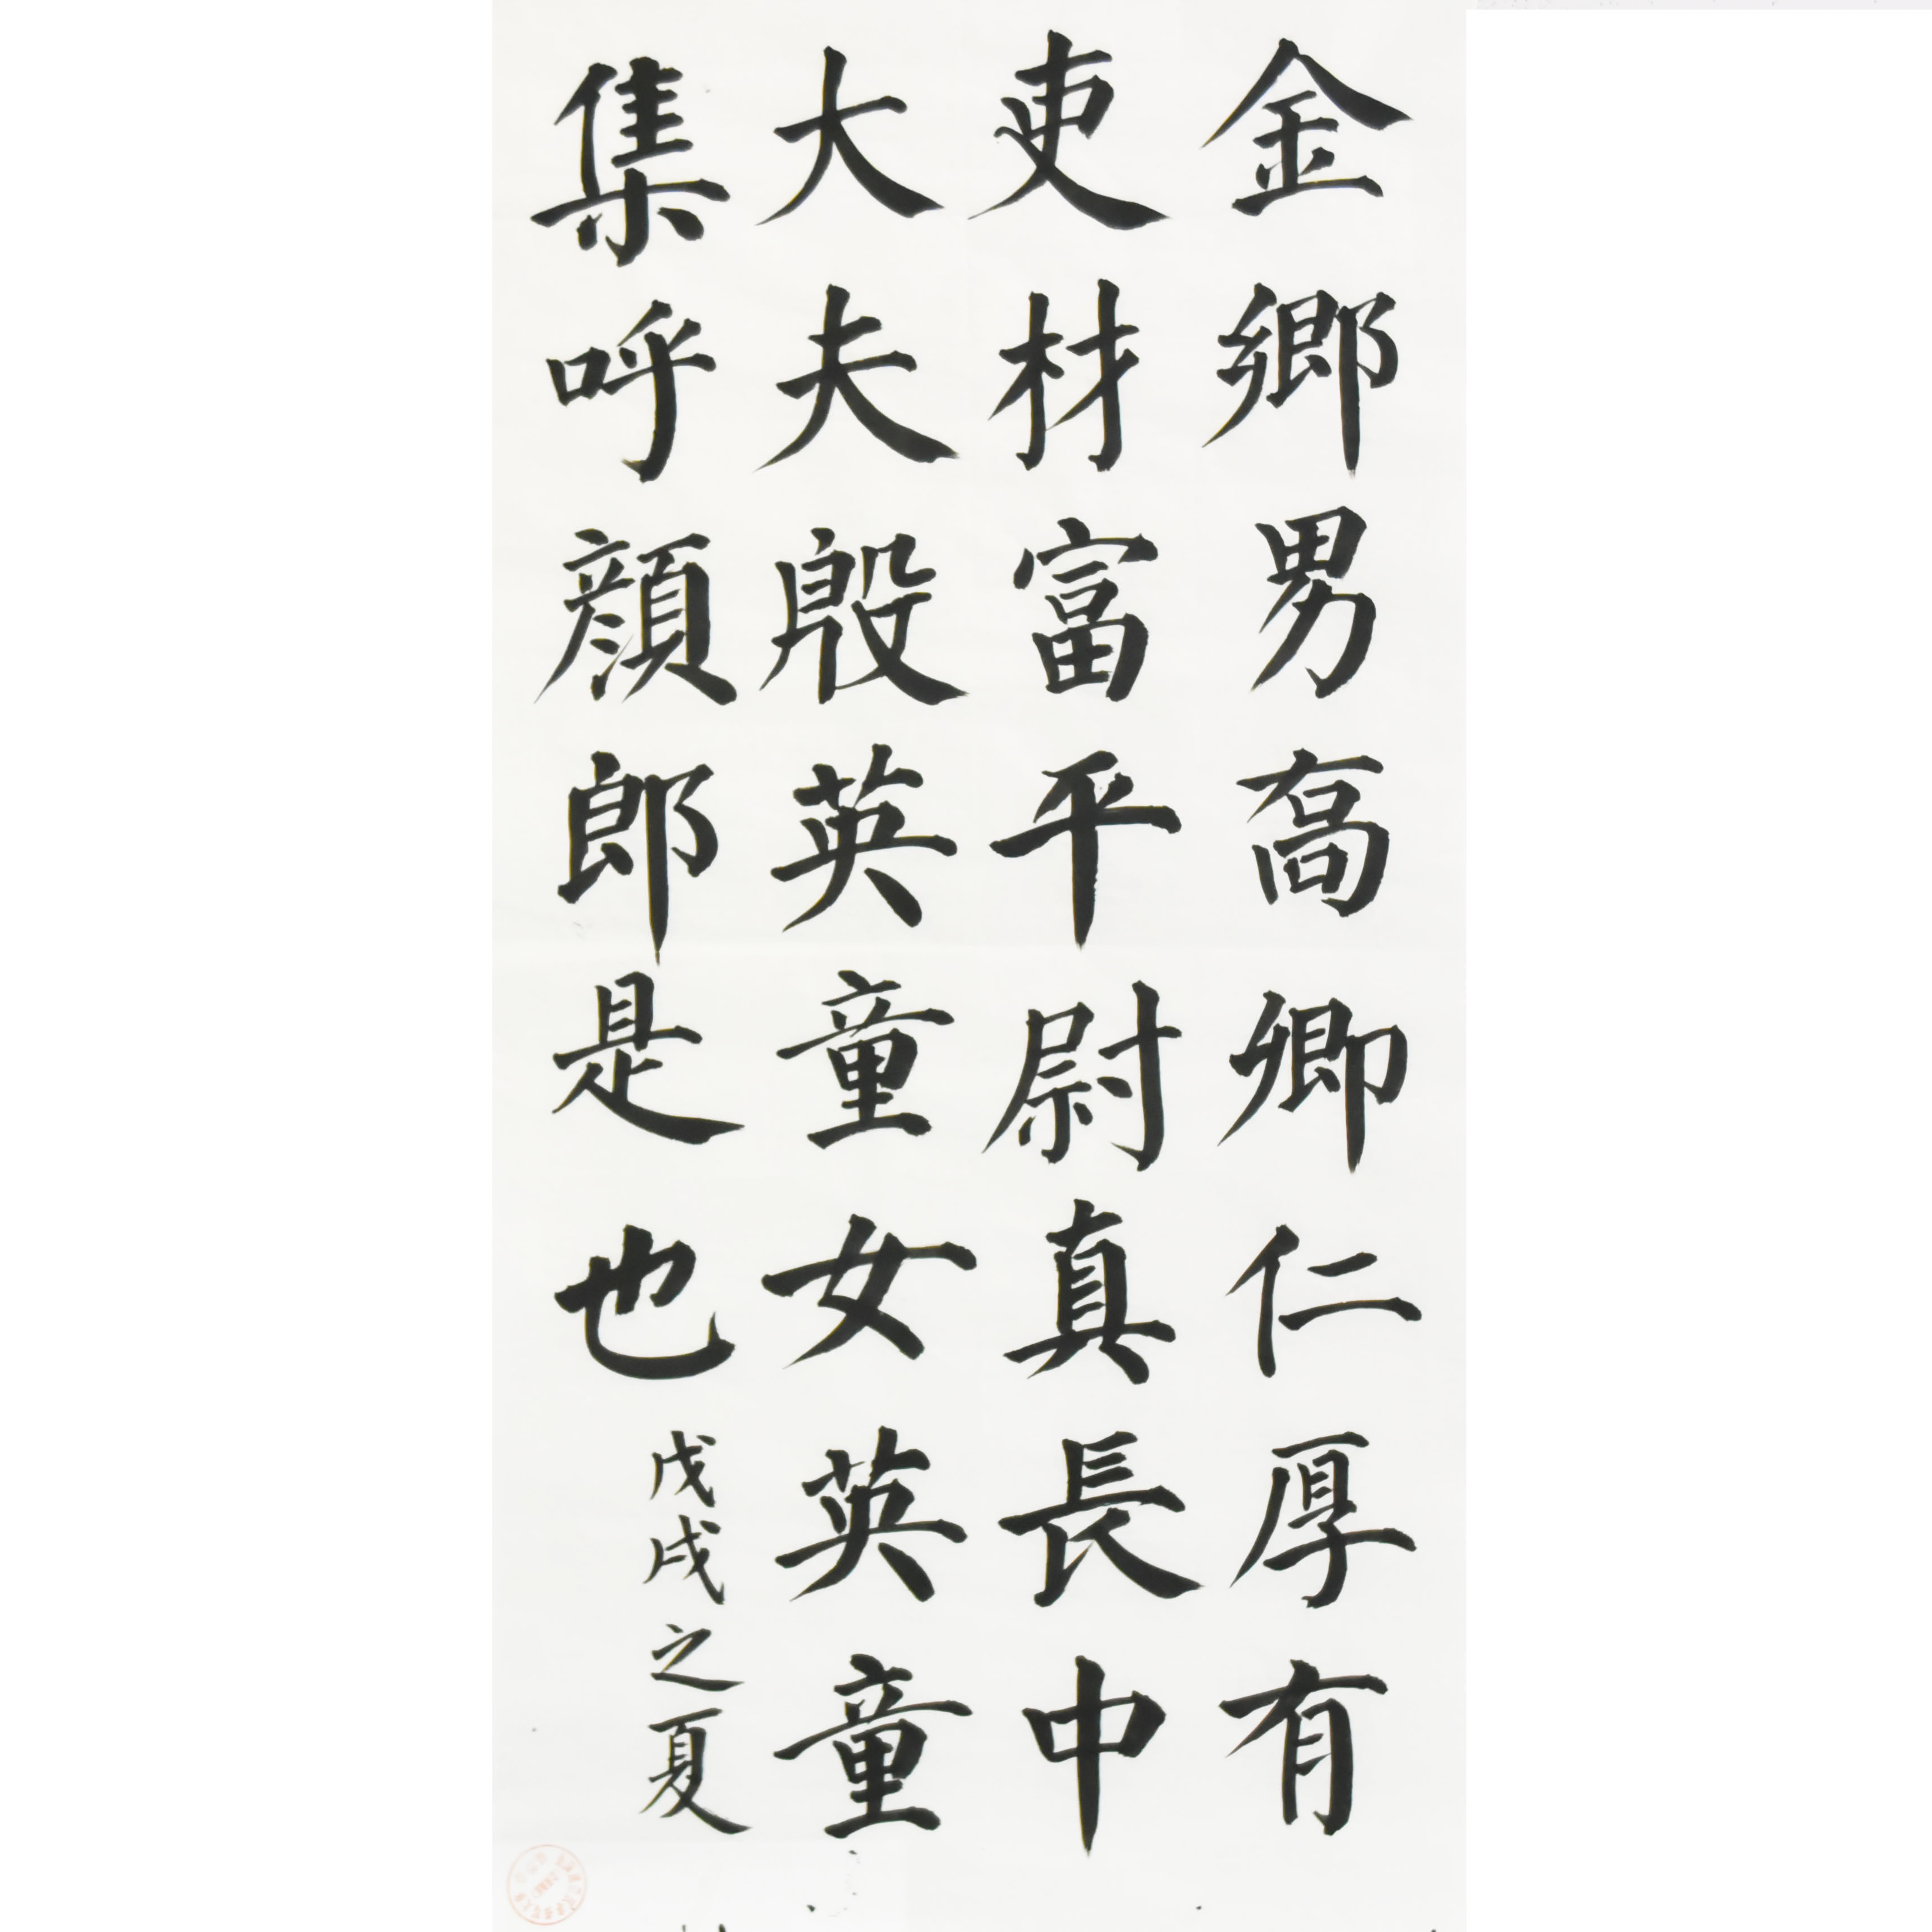 金鄉男髙卿仁厚有
吏材富平尉真長中
大夫殷英童女英童
集呼顔郎是也
戊戌之夏